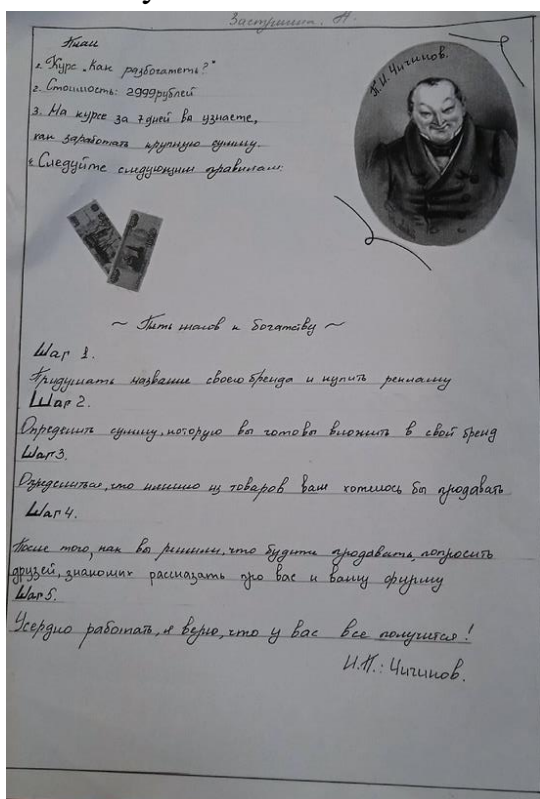 Застришина. А.
План
1. Курс „Как разбогатеть?"
2. Стоимость: 2999рублей
3. На курсе за 7 дней вы узнаете,
как заработать крупную сумму.
4. Следуйте следующим правилам:
П.И.Чичиков.
~ Пять шагов к богатству ~
Шаг 1.
Придумать название своего бренда и купить рекламу
Шаг 2.
Определить сумму, которую вы готовы вложить в свой бренд
Шаг3.
Определиться, что именно из товаров вам хотелось бы продавать
Шаг4.
После того, как вы решили, что будити продавать, попросить
друзей, знакомих рассказать про вас и вашу фирму
Шаг5.
Усердно работать, я верю, что у вас все получится!
И.П.: Чичиков.